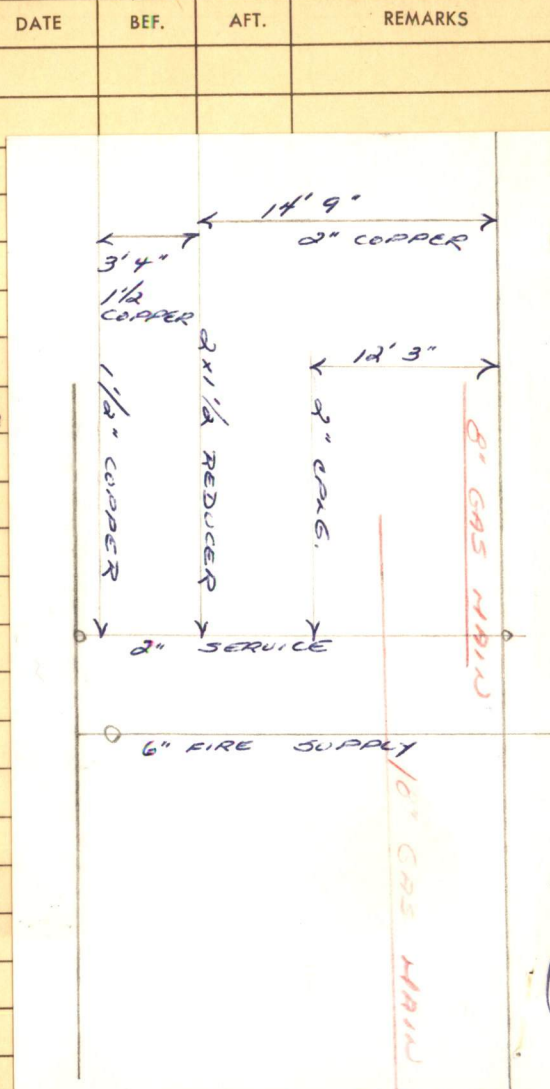 DATE BEF. AFT. REMARKS
14' 9"
2" COPPER
3' 4"
1 1/2
COPPER
12' 3"
1 1/2" COPPER
2 x 1 1/2 REDUCER
2" CPLG.
8" GAS MAIN
2" SERVICE
6" FIRE SUPPLY
10" GAS MAIN